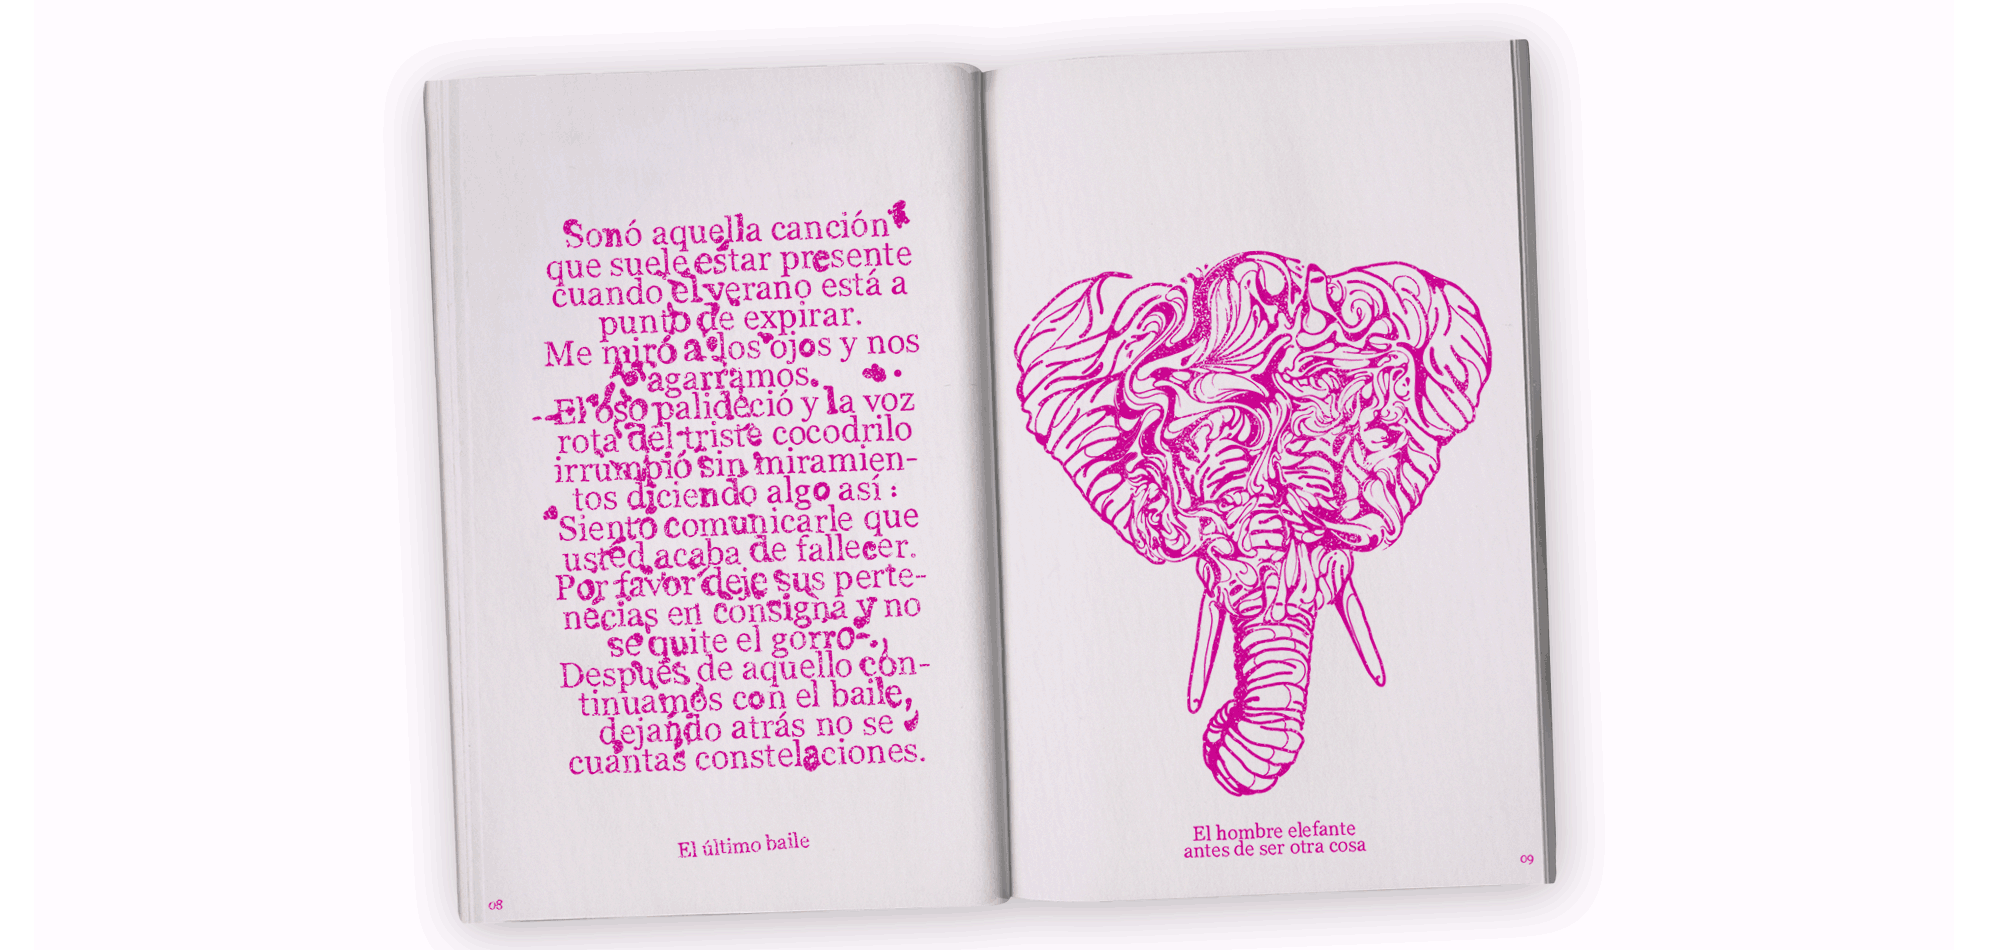 Sonó aquella canción
que suele estar presente
cuando el verano está a
punto de expirar.
Me miró a los ojos y nos
agarramos.
El oso palideció y la voz
rota del triste cocodrilo
irrumpió sin miramien-
tos diciendo algo así :
Siento comunicarle que
usted acaba de fallecer.
Por favor deje sus perte-
necias en consigna y no
se quite el gorro-.,
Después de aquello con-
tinuamos con el baile,
dejando atrás no se
cuántas constelaciones.
El último baile
08
El hombre elefante
antes de ser otra cosa
09